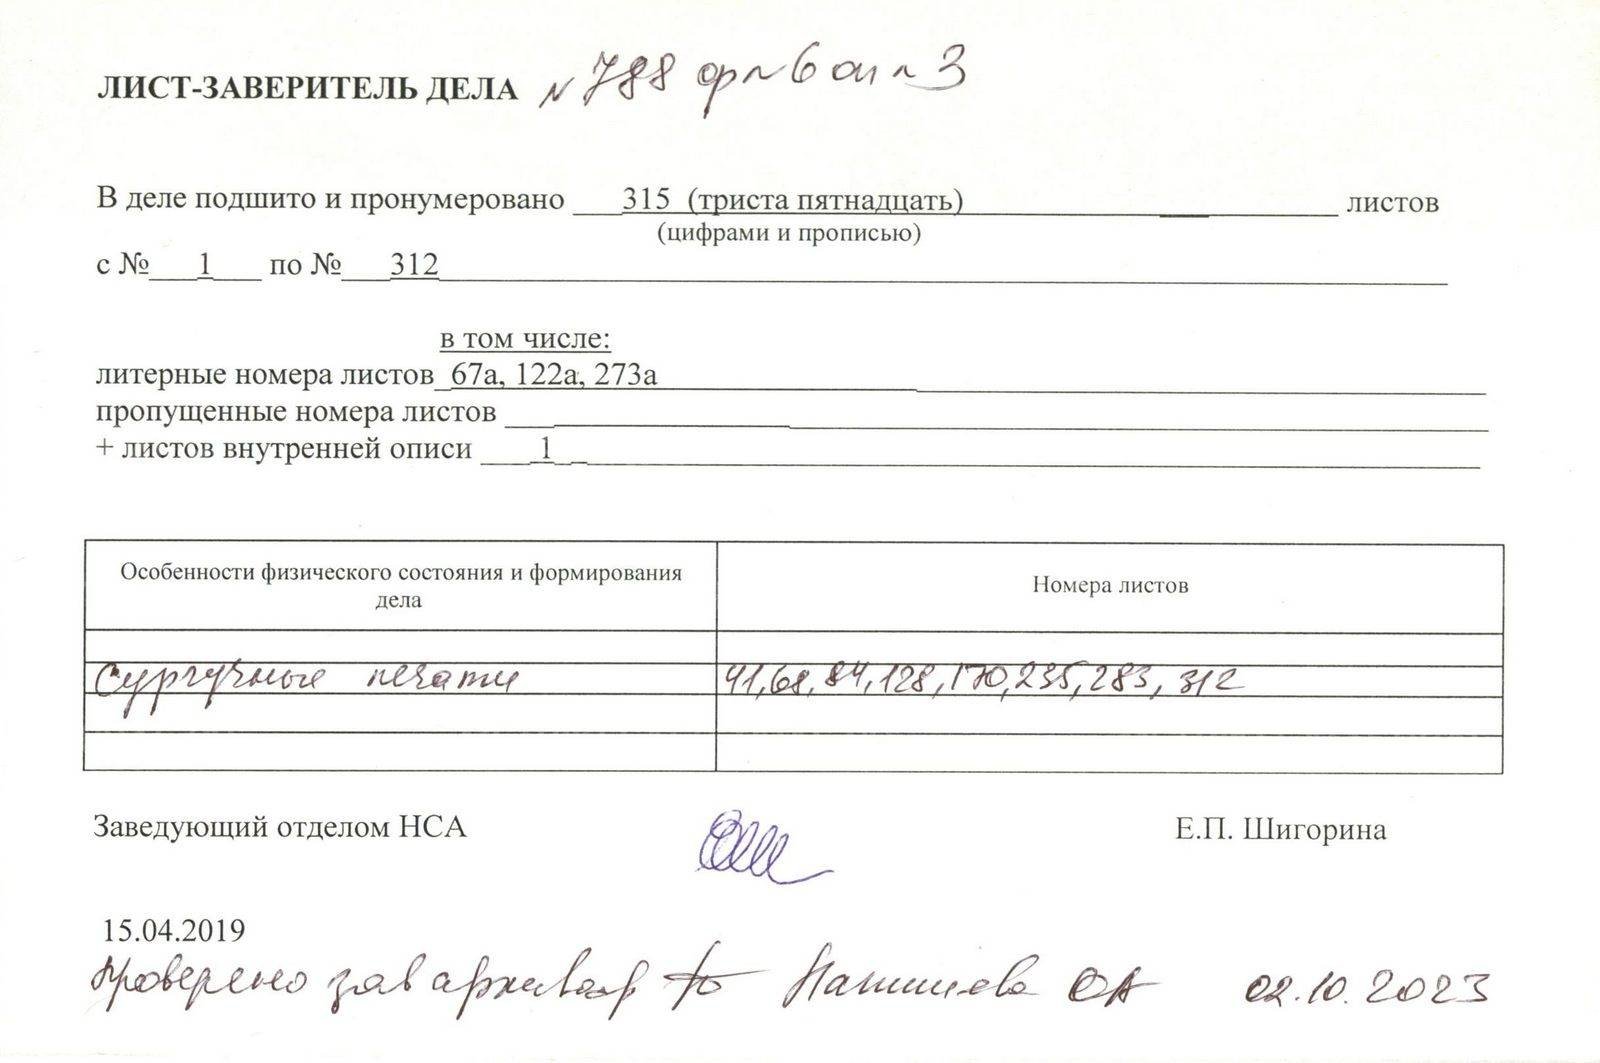 ЛИСТ-ЗАВЕРИТЕЛЬ ДЕЛА № 788 ф № 6 оп № 3
В деле подшито и пронумеровано 315 (триста пятнадцать) листов
(цифрами и прописью)
с № 1 по № 312
в том числе:
литерные номера листов 67а, 122а, 273а
пропущенные номера листов
+ листов внутренней описи 1
Особенности физического состояния и формирования
дела
Номера листов
Сургучные печати 41, 68, 84, 128, 170, 235, 283, 312
Заведующий отделом НСА Е.П. Шигорина
15.04.2019
Проверено зав архивохр ОА 02.10.2023